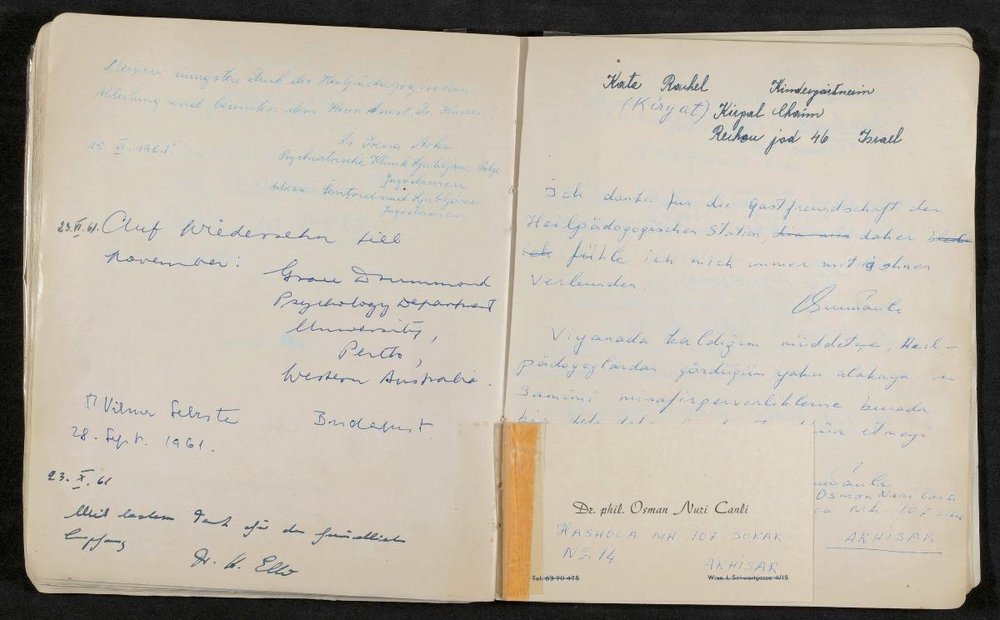 Meinen innigsten Dank der Heilpädagogischen
Abteilung und besonders dem Herrn
15. VI. 1961. Dr Irena
Psychiatrische Klinik Ljubljana, Polje
Jugoslawien
Ljubljana
Jugoslawien
23. VI. 61. Auf Wiedersehn till
November:
Grace Drummond
Psychology Department
University,
Perth,
Western Australia.
Vilmer Budapest.
28. Sept. 1961.
23. X. 61
Mit bestem Dank für den freundlichen
Empfang
Dr. H.
Katz Rachel Kindergärtnerin
(Kiryat) Kirpal Chaim
Rechou jod 46 Israel
Ich danke für die Gastfreundschaft der
Heilpädagogischen Station, daher
fühle ich mich immer mit ihnen
verbunden.
Viyanada kaldığım müddetçe, Heil-
pädagoglardan gördüğüm yakın alakaya ve
Samimi misafirperverliklerine burada
etmeyi
Osman Nuri Canlı
MH. 107 SOKAK
AKHİSAR
Dr. phil. Osman Nuri Canli
HASHOCA MH. 107 SOKAK
No. 14
AKHİSAR
Tel. 63 90 475 Wien I, Schwertgasse 4/15